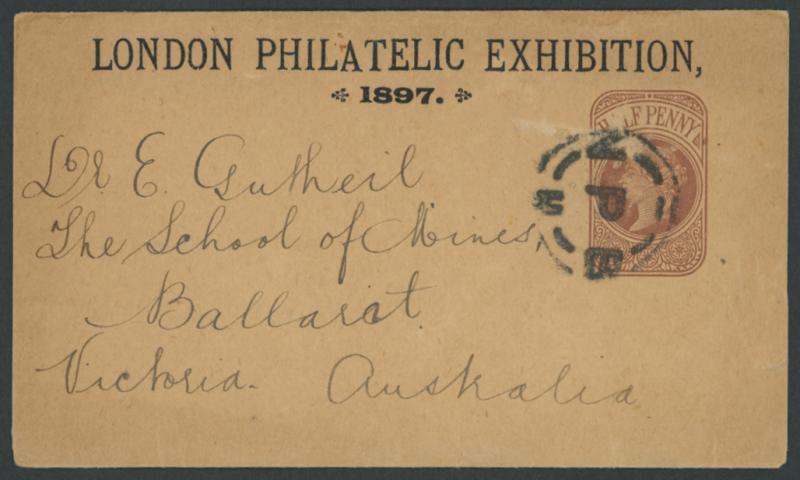 LONDON PHILATELIC EXHIBITION,
1897.
HALF PENNY
NPB
Dr. E. Gutheil
The School of Mines,
Ballarat.
Victoria. Australia